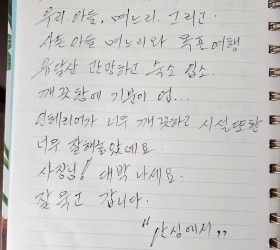 우리 아들, 며느리 그리고
사돈 아들 며느리와 목포여행
유달산 관망하고 숙소 입소
깨끗함에 기분이 업...
인테리어가 너무 깨끗하고 시설 또한
너무 잘해놓았네요.
사장님! 대박 나세요.
잘 묵고 갑니다.
"안성에서"